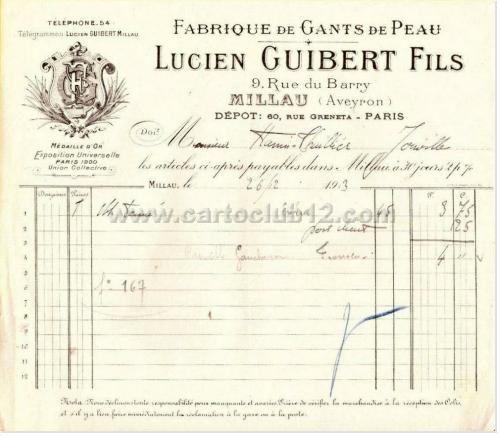 TÉLÉPHONE. 54
Télégrammes LUCIEN GUIBERT MILLAU
FABRIQUE DE GANTS DE PEAU
LUCIEN GUIBERT FILS
9, Rue du Barry
MILLAU (Aveyron)
DÉPÔT: 60, RUE GRENETA - PARIS
MÉDAILLE D'OR
Exposition Universelle
PARIS 1900
Union Collective
Doit Monsieur
les articles ci-après payables dans Millau à 30 jours
MILLAU, le 26/12 1913
Douzaines Paires F. C.
1 1 45 3 75
2 port 25
3
4 4 "
5
6 167
7
8
9
10
11
12
www.cartoclub12.com
Nota. Nous déclinons toute responsabilité pour manquants et avaries. Prière de vérifier la marchandise à la réception des Colis,
et s'il y a lieu faire immédiatement la réclamation à la gare ou à la poste.